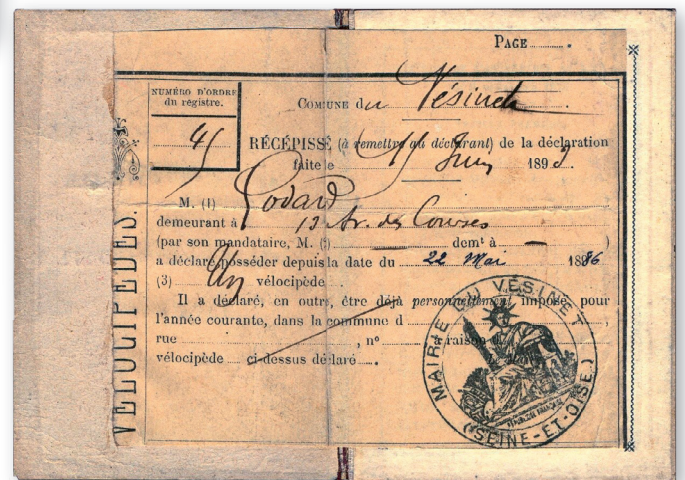 PAGE ........ .
NUMÉRO D'ORDRE
du régistre.
45
COMUNE du Vésinet
RÉCÉPISSÉ (à remettre au déclarant) de la déclaration
faite le 15 Juin 1893
M. (1) Godard
demeurant à 13 Av. des Courses
(par son mandataire, M. (2) — demt à — )
a déclaré posséder depuis la date du 22 Mai 1886
(3) Un vélocipède
Il a déclaré, en outre, être déjà personnellement imposé, pour
l'année courante, dans la commune d ,
rue , n° à raison d
vélocipède ci-dessus déclaré .
VÉLOCIPÈDES.
MAIRIE DU VÉSINET
(SEINE-ET-OISE)